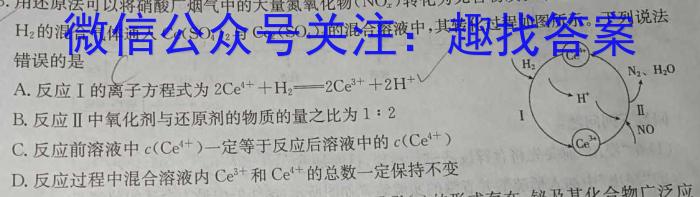 用还原法可以将硝酸厂烟气中的大量氮氧化物(NOₓ)转化为
H₂的混合 通入Ce(SO₄)₂与Ce₂(SO₄)₃的混合溶液中,其转化过程如图所示。下列说法
微信公众号关注：趣找答案
错误的是
A. 反应Ⅰ的离子方程式为 2Ce⁴⁺+H₂══2Ce³⁺+2H⁺
B. 反应Ⅱ中氧化剂与还原剂的物质的量之比为1∶2
C. 反应前溶液中c(Ce⁴⁺)一定等于反应后溶液中的c(Ce⁴⁺)
D. 反应过程中混合溶液内Ce³⁺和Ce⁴⁺的总数一定保持不变
H₂
Ce⁴⁺
N₂、H₂O
H⁺
Ⅰ
Ⅱ
NO
Ce³⁺
的形式存在,铋及其化合物广泛应